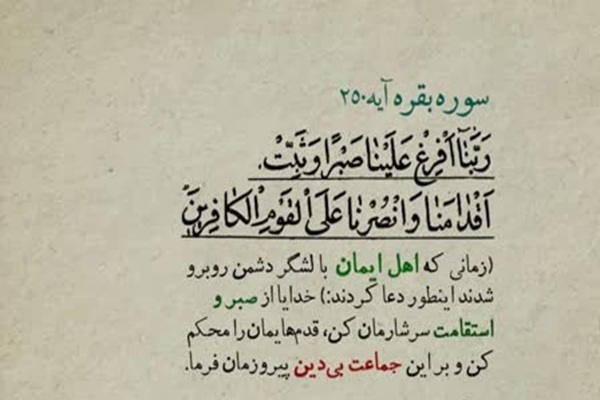 سوره بقره آیه ۲۵۰
رَبَّنَآ اَفْرِغْ عَلَیْنٰا صَبْرًا وَ ثَبِّتْ
اَقْدٰامَنٰا وَ انْصُرْنٰا عَلَی الْقَوْمِ الْکٰافِرِینَ
(زمانی که اهل ایمان با لشگر دشمن روبرو
شدند اینطور دعا کردند:) خدایا از صبر و
استقامت سرشارمان کن، قدم‌هایمان را محکم
کن و بر این جماعت بی‌دین پیروزمان فرما.